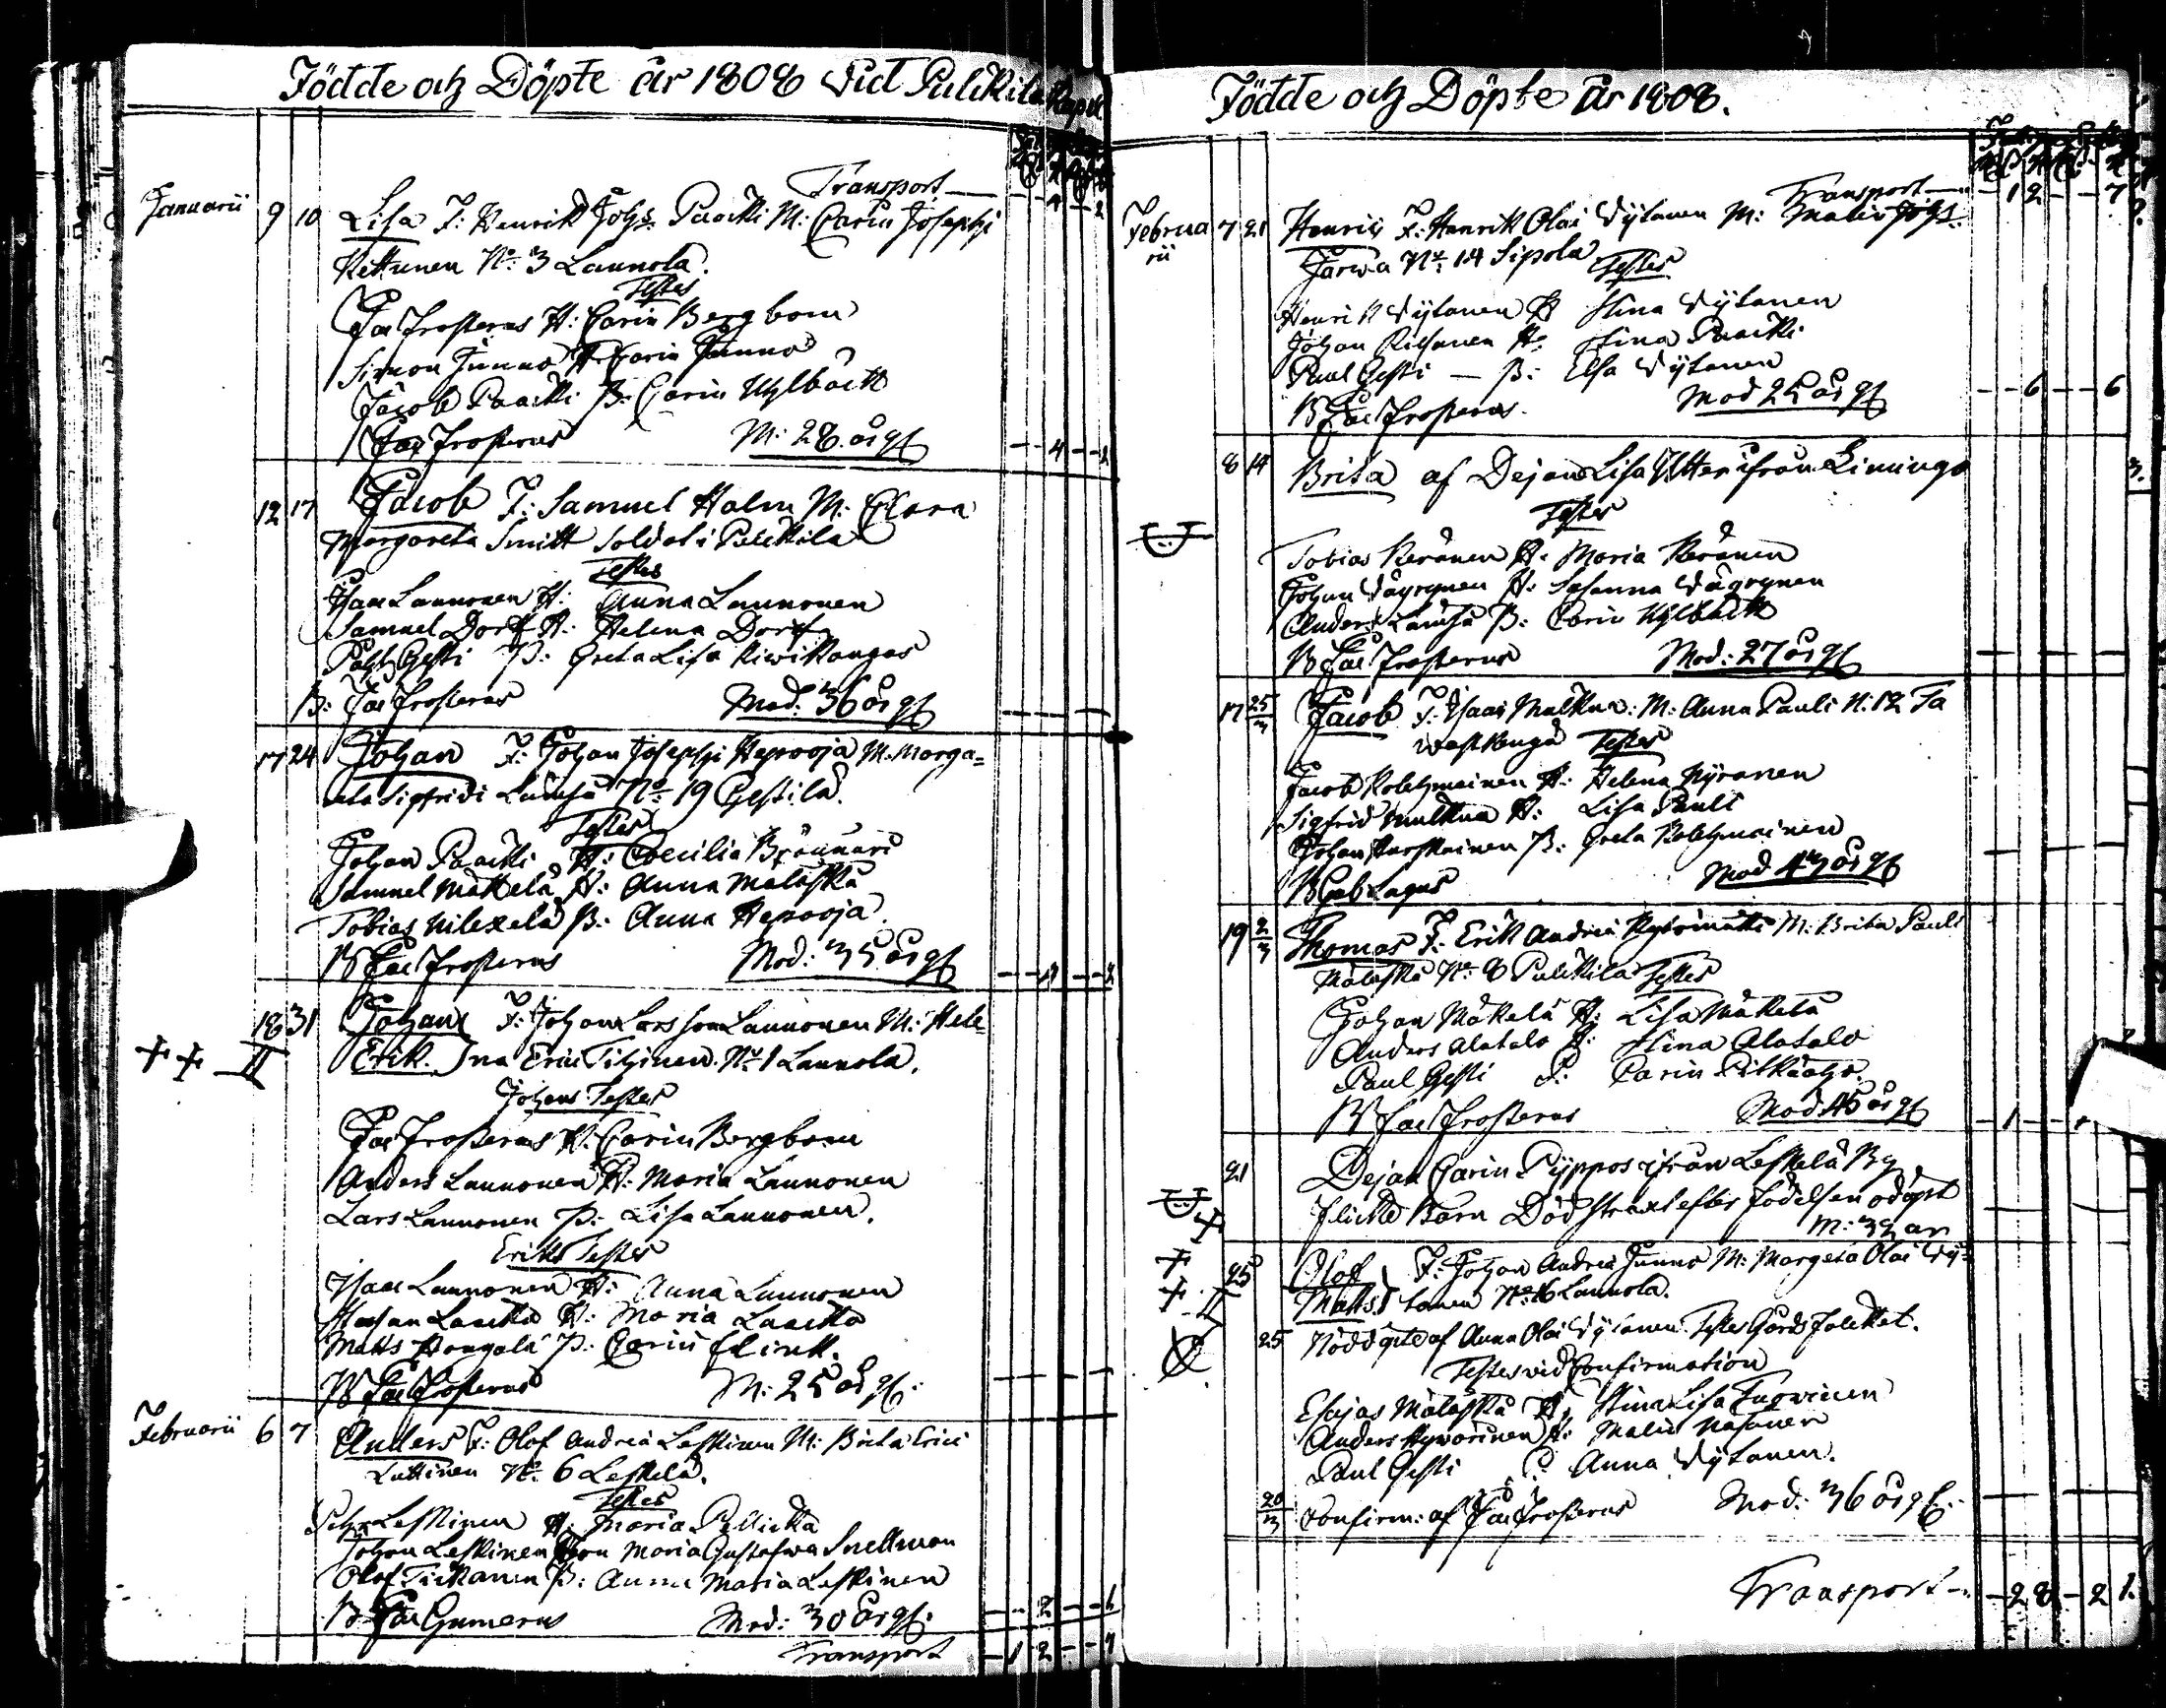 Födde och Döpte år 1808 vid Pulkkila Kapell
Transport — 4 — 2
Januarii 9 10 Lisa F: Henrik Johs. Paakki M: Carin Josephi
Kettunen No 3 Launola.
Testes
Jac Frosterus H: Carin Bergbom
Simon Junno H: Carin Junno
Jacob Paakki P: Carin Uhlbäck
B Jac Frosterus M: 28 år gl
— 4 — 2
12 17 Jacob F: Samuel Halm M: Clara
Margareta Smitt Soldat i Pulkkila
Testes
Isaac Launonen H: Anna Launonen
Samuel Dorff H: Helena Dorff
Pahl Gesti P: Greta Lisa Kiwikangas
B: Jac Frosterus Mod: 36 år gl
17 24 Johan F: Johan Josephi Heprooja M: Marga=
reta Sigfridi Lämsä No 19 Gestilä.
Testes
Johan Paakki H: Caecilia
Samuel Mäkelä H: Anna Malaska
Tobias P: Anna Heprooja.
B Jac Frosterus Mod: 35 år gl
— 4 — 2
18 31 Johan F: Johan Larsson Launonen M: Hele-
II Erik. na Erici Tihinen No 1 Launola.
Johans Testes
Jac Frosterus H: Carin Bergbom
Anders Launonen H: Maria Launonen
Lars Launonen P: Lisa Launonen.
Eriks Testes
Isaac Launonen H: Anna Launonen
Laakko H: Maria Laakko
Matts Hongala P: Carin Flink.
B Jac Frosterus M: 25 år gl.
Februarii 6 7 Anders F: Olof Andreæ Leskinen M: Brita Erici
Luttinen No 6 Leskelä.
Testes
Pehr Leskinen H: Maria Pellikka
Johan Leskinen Maria Gustafwa Snellman
Olof Tikkanen P: Anna Maria Leskinen
B Jac Gumerus Mod: 30 år gl.
— 2 — 6
Transport — 12 — 7
Födde och Döpte År 1808.
Transport — 12 — 7
Februa
rii 7 21 Henric F: Henrik Olai Wytanen M: Malin Johs.
Jarwa No 14 Sipola
Testes
Henrik Wytanen H Stina Wytanen
Johan H: Stina Paakki
Paul Gesti — P: Elsa Wytanen
B Jac Frosterus. Mod 25 år gl
— 6 — 6
8 14 Brita af Dejan Lisa Utter ifrån Limingo
Testes
Tobias Keränen H: Maria Keränen
Johan Wäyrynen H: Susanna Wäyrynen
Anders Lämsä P: Carin Uhlbäck
B Jac Frosterus Mod: 27 år gl
17 25/3 Jacob F: Isaac Mulkua: M: Anna Pauli N: 12 Ta
waskenga Testes
Jacob Kolehmainen H: Helena Nyronen
Sigfrid Mulkua H: Lisa Pauli
Johan Karskainen P: Greta Kolehmainen
B Gab Lagus Mod 43 år gl
19 2/3 Thomas F: Erik Andreæ M: Brita Pauli
Malaska No 8 Pulkkila Testes
Johan Mäkelä H: Lisa Mäkelä
Anders Alatalo H: Stina Alatalo
Paul Gesti P: Carin Pitkäaho.
B Jac Frosterus Mod: 45 år gl
21 Dejan Carin Pyppos ifrån Leskelä By
flicke Barn Död strax efter födelsen odöpt
M: 32 år
25 Olof F: Johan Andreæ Junno M: Margeta Olai Wy=
II Matts tanen No 16 Launola.
25 Nöddöpte af Anna Olai Wytanen. Testes Gårds folcket.
Testes vid Confirmation
Esajas Malaska H: Stina Lisa Turwinen
Anders Hywärinen H: Malin Nasanen
Paul Gesti P: Anna Wytanen.
20/3 Confirm: af Jac Frosterus Mod: 36 år gl.
Transport — 28 — 21.